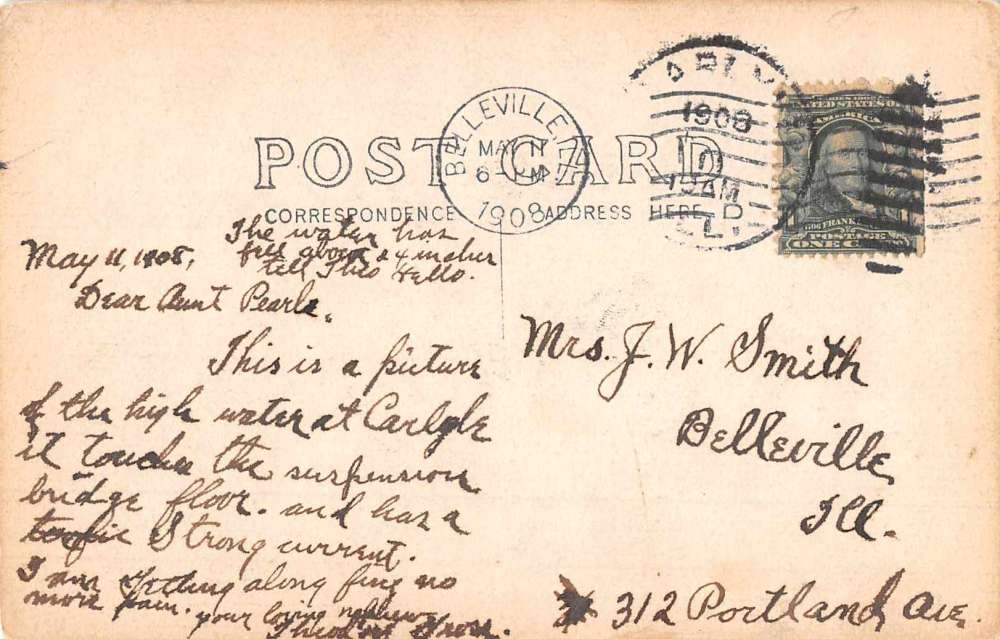 POST CARD
CORRESPONDENCE
ADDRESS HERE
BELLEVILLE, ILL.
MAY 11
6- PM
1908
1908
10
AM
ILL.
SERIES 1902
UNITED STATES OF
AMERICA
FRANKLIN
POSTAGE
ONE CENT
The water has
fell about 24 inches
tell Theo Hello.
May 11, 1908,
Dear Aunt Pearle.
This is a picture
of the high water at Carlyle
it touches the suspension
bridge floor. and has a
Strong current.
I am getting along fine no
more pain.
your loving nephew
Theodore
Mrs. J. W. Smith
Belleville
Ill.
312 Portland Ave.